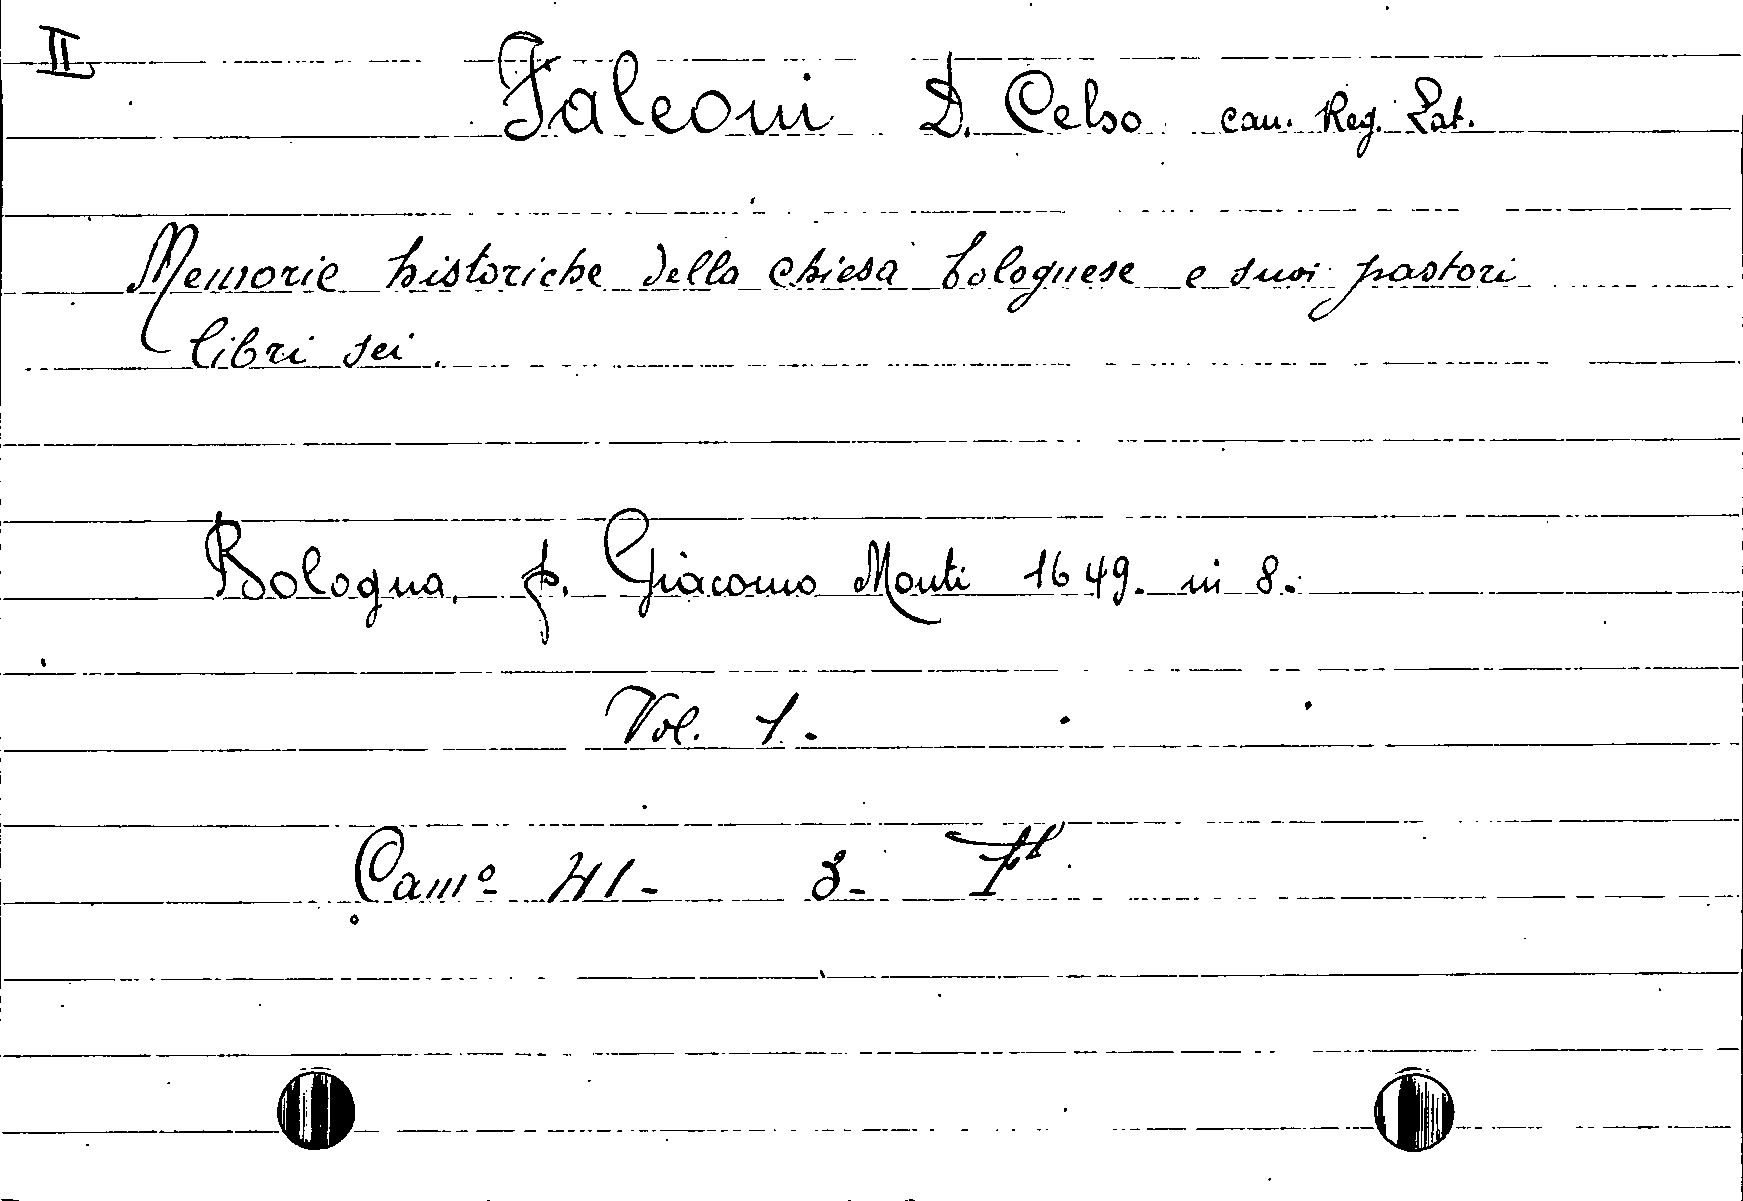 II
Faleoni D. Celso can. Reg. Lat.
Memorie historiche della chiesa bolognese e suoi pastori
libri sei.
Bologna, p. Giacomo Monti 1649. in 8.
Vol. 1.
Camº 41- 3-